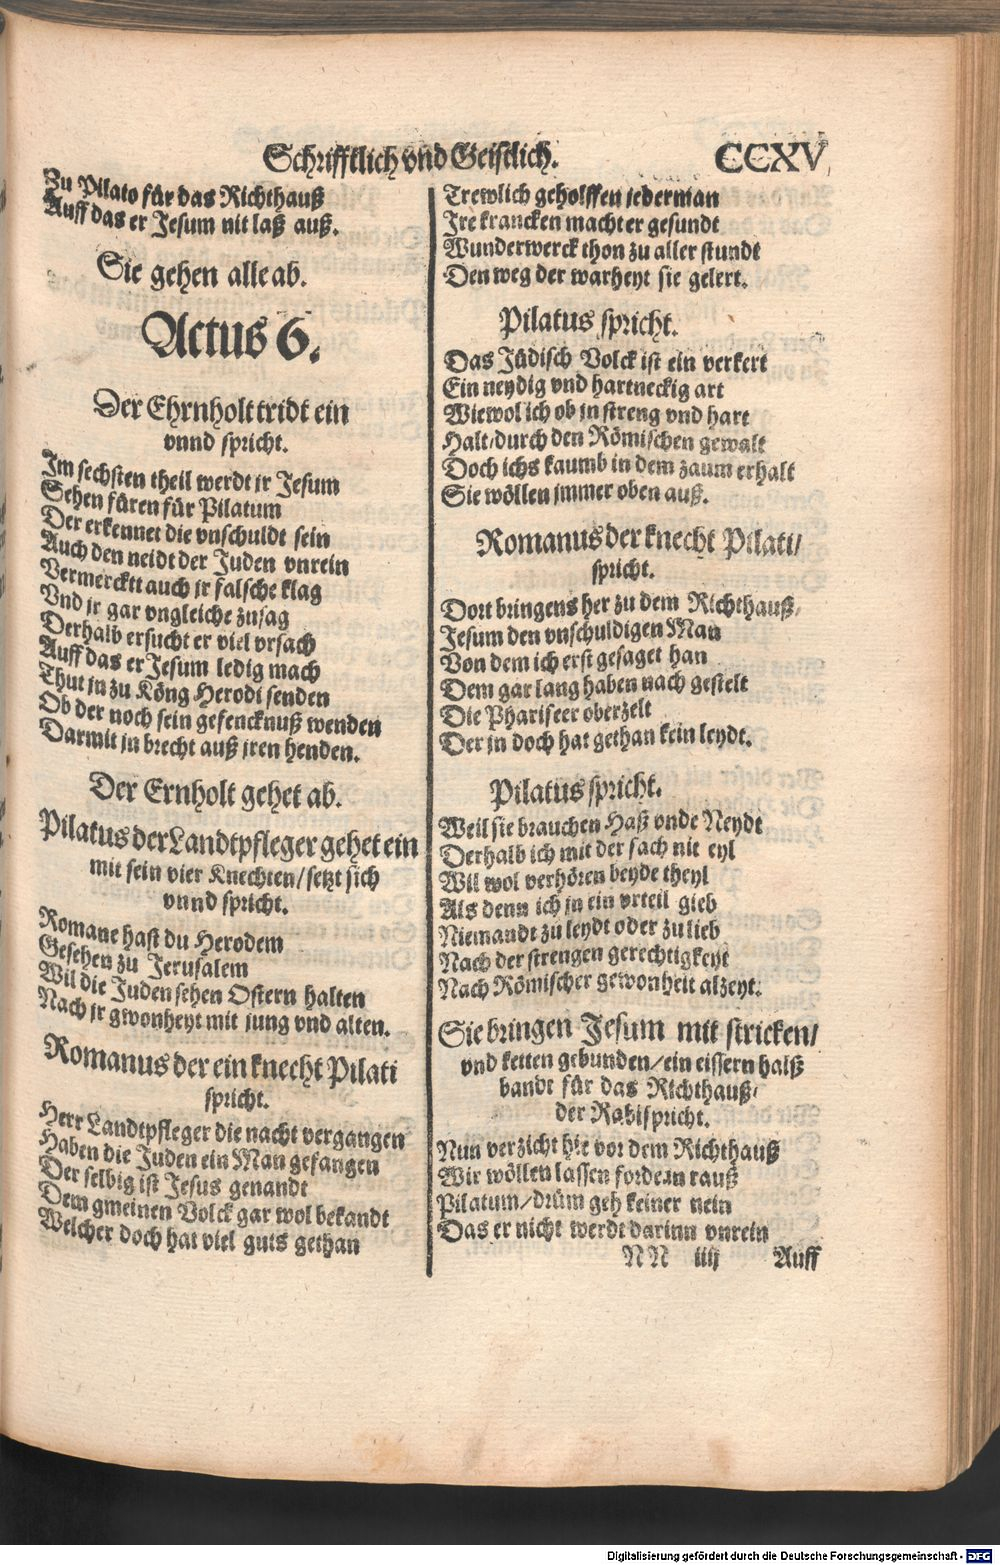 Schrifftlich vnd Geistlich. CCXV
Zu Pilato für das Richthauß
Auff das er Jesum nit laß auß.
Sie gehen alle ab.
Actus 6.
Der Ehrnholt tridt ein
vnnd spricht.
Im sechsten theil werdt ir Jesum
Sehen füren für Pilatum
Der erkennet die vnschuldt sein
Auch den neidt der Juden vnrein
Vermercktt auch ir falsche klag
Vnd ir gar vngleiche zusag
Derhalb ersucht er viel vrsach
Auff das er Jesum ledig mach
Thut jn zu Köng Herodi senden
Ob der noch sein gefencknuß wenden
Darmit jn brecht auß jren henden.
Der Ernholt gehet ab.
Pilatus der Landtpfleger gehet ein
mit sein vier Knechten/ setzt sich
vnnd spricht.
Romane hast du Herodem
Gesehen zu Jerusalem
Wil die Juden sehen Ostern halten
Nach jr gwonheyt mit jung vnd alten.
Romanus der ein knecht Pilati
spricht.
Herr Landtpfleger die nacht vergangen
Haben die Juden ein Man gefangen
Der selbig ist Jesus genandt
Dem gmeinen Volck gar wol bekandt
Welcher doch hat viel guts gethan
Trewlich geholffen jederman
Ire krancken macht er gesundt
Wunderwerck thon zu aller stundt
Den weg der warheyt sie gelert.
Pilatus spricht.
Das Jüdisch Volck ist ein verkert
Ein neydig vnd hartneckig art
Wiewol ich ob jn streng vnd hart
Halt/ durch den Römischen gewalt
Doch ichs kaumb in dem zaum erhalt
Sie wöllen jmmer oben auß.
Romanus der knecht Pilati/
spricht.
Dort bringens her zu dem Richthauß/
Jesum den vnschuldigen Man
Von dem ich erst gesaget han
Dem gar lang haben nach gestelt
Die Phariseer oberzelt
Der jn doch hat gethan kein leydt.
Pilatus spricht.
Weil sie brauchen Haß vnde Neydt
Derhalb ich mit der sach nit eyl
Wil wol verhören beyde theyl
Als denn ich jn ein vrteil gieb
Niemandt zu leydt oder zu lieb
Nach der strengen gerechtigkeyt
Nach Römischer gewonheit alzeyt.
Sie bringen Jesum mit stricken/
vnd ketten gebunden/ ein eissern halß
bandt für das Richthauß/
der Rabi spricht.
Nun verzicht hie vor dem Richthauß
Wir wöllen lassen fordern rauß
Pilatum/ drüm geh keiner nein
Das er nicht werdt darinn vnrein
NN iiij Auff
Digitalisierung gefördert durch die Deutsche Forschungsgemeinschaft - DFG